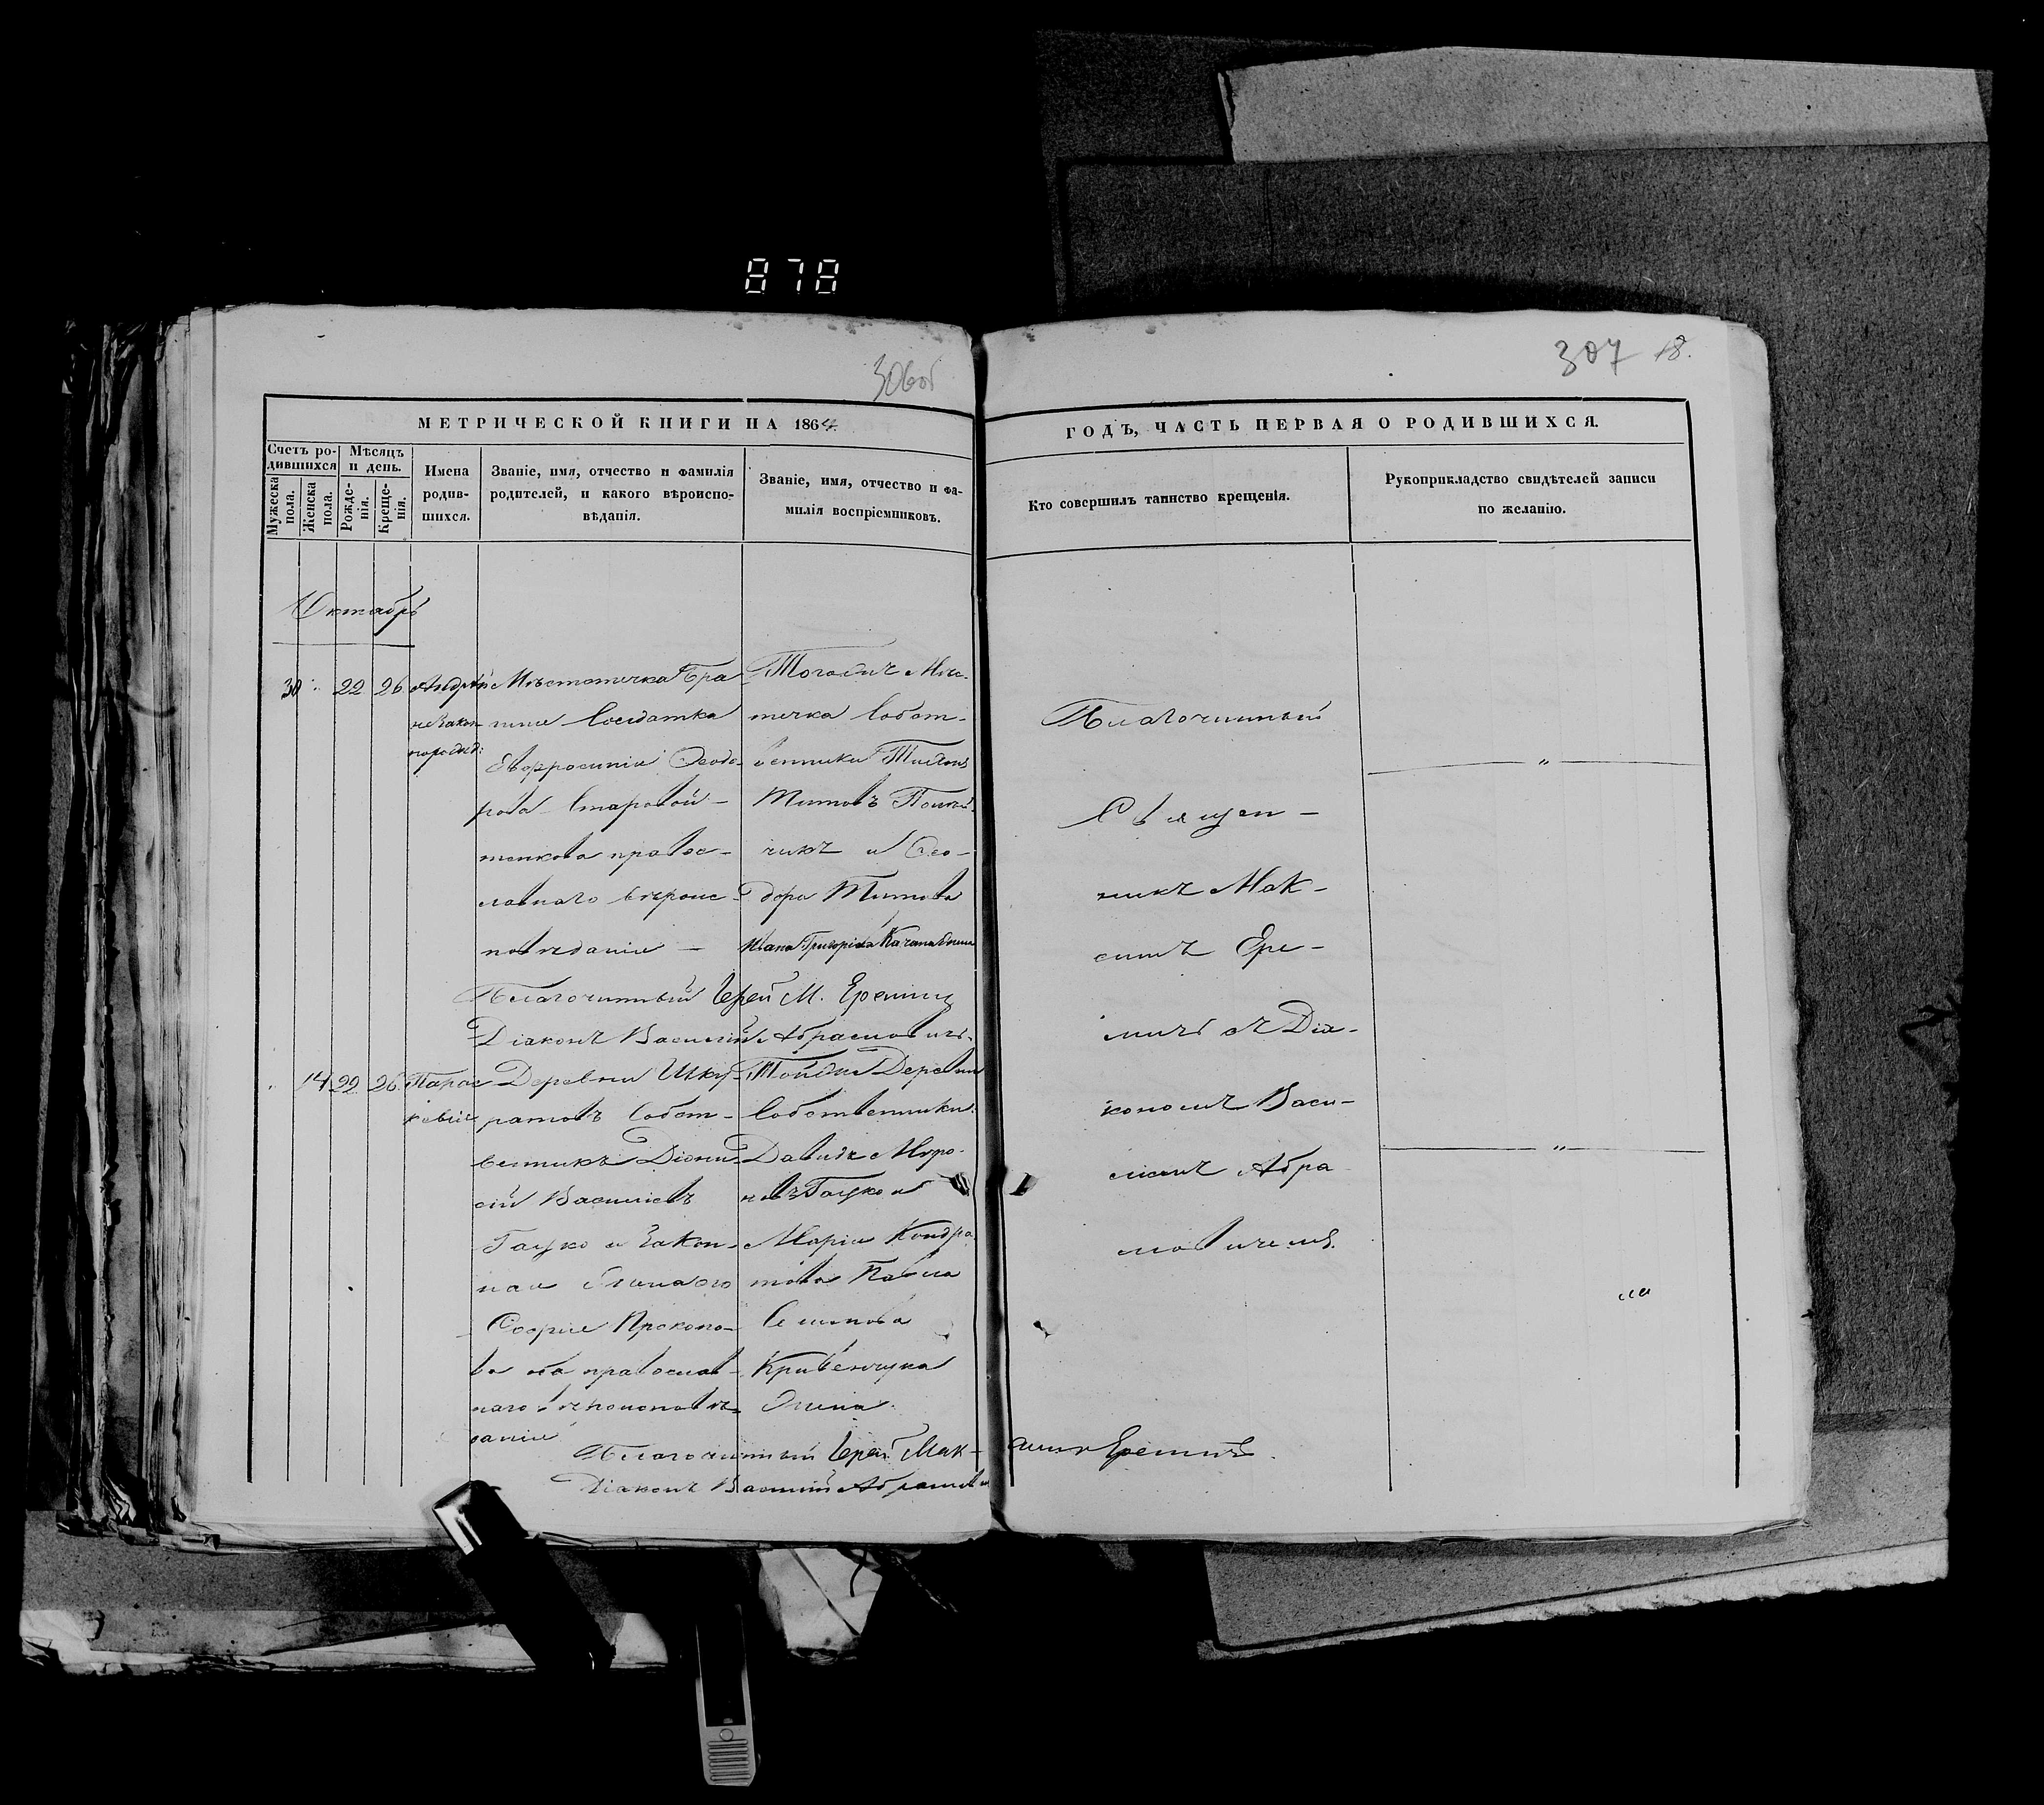 878
306об
307 18.
МЕТРИЧЕСКОЙ КНИГИ НА 1864
ГОДЪ, ЧАСТЬ ПЕРВАЯ О РОДИВШИХСЯ.
Счетъ ро-
дившихся
Мужеска
пола.
Женска
пола.
Мѣсяцъ
и день.
Рожде-
нія.
Креще-
нія.
Имена
родив-
шихся.
Званіе, имя, отчество и фамилія
родителей, и какого вѣроиспо-
вѣданія.
Званіе, имя, отчество и фа-
милія воспріемниковъ.
Кто совершилъ таинство крещенія.
Рукоприкладство свидѣтелей записи
по желанію.
Октябрь
30 22 26
Андрей
незакон
норожд:
Мѣстечка Бра
Солдатка
Евфросинія Ѳеодо-
рова Старовой-
тенкова правос-
лавнаго вѣроис-
повѣданія —
Тогожъ Мѣс-
течка Собст-
венники Тихонъ
Титовъ
чикъ и Ѳео-
дора Титова
Ивана Григоріева
Благочинный Іерей М. Еремичъ
Діаконъ Василій Абрамовичъ.
14 22 26
Парас
кевія
Деревни Шку-
ратовъ Собст-
венникъ Діони-
сій Василіевъ
Гацко и закон-
ная жена его
Софія Прокопо-
ва оба православ-
наго вѣроисповѣ-
данія
Тойже Деревни
Собственники
Давидъ Миро-
новъ Гацко и
Марія Кондра
това Павла
Семенова
Кривенчука
жена
Благочинный
Священ-
никъ Мак-
симъ Ере-
мичъ съ Діа-
кономъ Васи-
ліемъ Абра
мовичемъ.
Благочинный Іерей Мак-
симъ Еремичъ.
Діаконъ Василій Абрамович